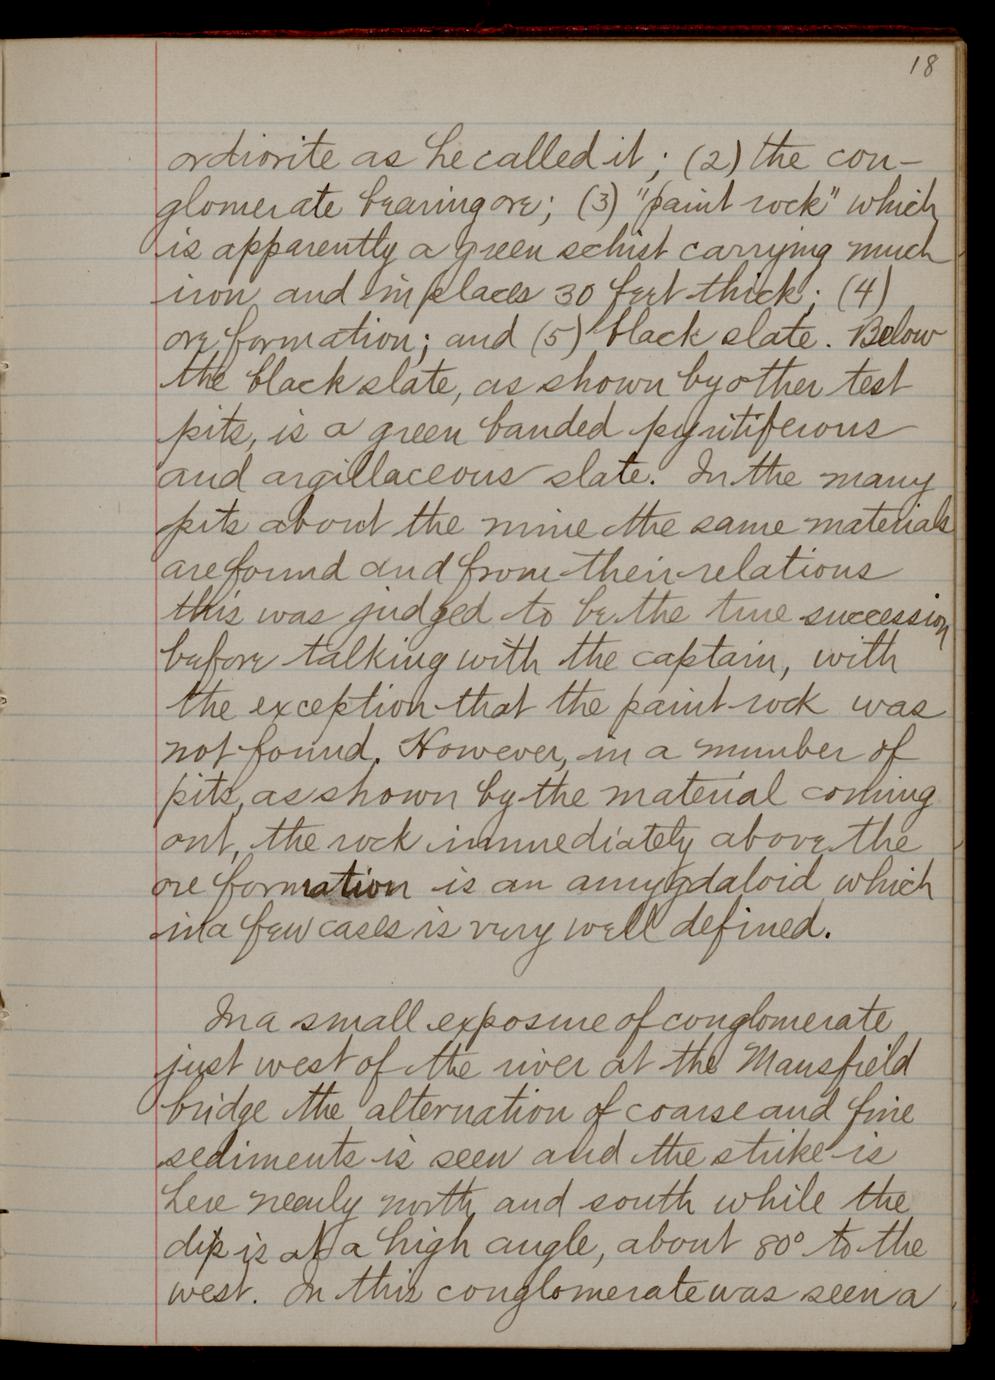 18
or diorite as he called it; (2) the con-
glomerate bearing ore; (3) "paint rock" which
is apparently a green schist carrying much
iron and in places 30 feet thick; (4)
ore formation; and (5) black slate. Below
the black slate, as shown by other test
pits, is a green banded pyritiferous
and argillaceous slate. In the many
pits about the mine the same materials
are found and from their relations
this was judged to be the true succession
before talking with the captain, with
the exception that the paint rock was
not found. However, in a number of
pits, as shown by the material coming
out, the rock immediately above the
ore formation is an amygdaloid which
in a few cases is very well defined.
In a small exposure of conglomerate
just west of the river at the Mansfield
bridge the alternation of coarse and fine
sediments is seen and the strike is
here nearly north and south while the
dip is at a high angle, about 80° to the
west. In this conglomerate was seen a